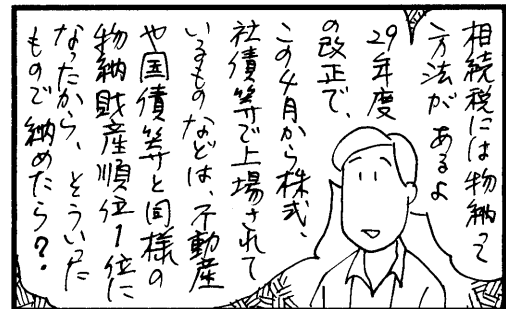 相続税には物納って
方法があるよ
29年度
の改正で、
この4月から株式、
社債等で上場されて
いるものなどは、不動産
や国債等と同様の
物納財産順位1位に
なったから、そういった
もので納めたら?